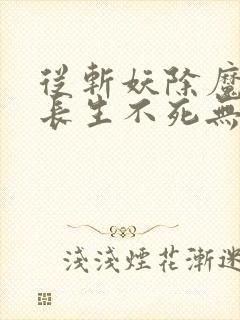 從斬妖除魔
長生不死無
淺淺煙花漸迷